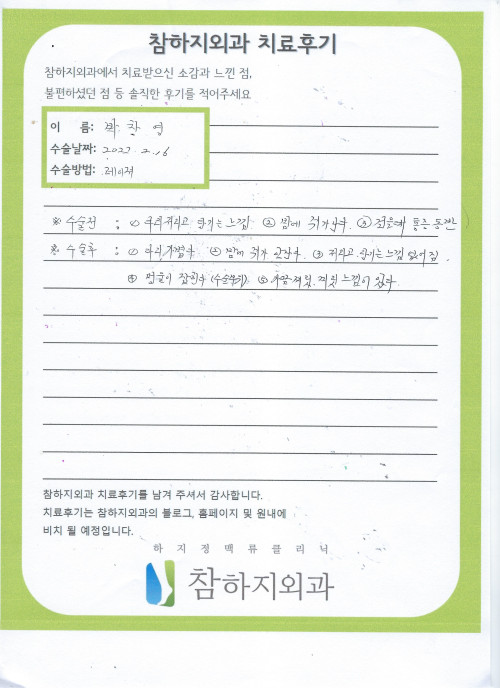 참하지외과 치료후기
참하지외과에서 치료받으신 소감과 느낀 점,
불편하셨던 점 등 솔직한 후기를 적어주세요
이 름: 박찬영
수술날짜: 2022. 2. 16
수술방법: 레이저
※ 수술전 : ① 다리 저리고 당기는 느낌 ② 밤에 쥐가 난다. ③ 걸을때 통증 동반
※ 수술후 : ① 다리 가볍다 ② 밤에 쥐가 안난다. ③ 저리고 당기는 느낌 없어짐.
④ 멍울이 잡힌다 (수술부위) ⑤ 느낌이 있다.
참하지외과 치료후기를 남겨 주셔서 감사합니다.
치료후기는 참하지외과의 블로그, 홈페이지 및 원내에
비치 될 예정입니다.
하지정맥류클리닉
참하지외과